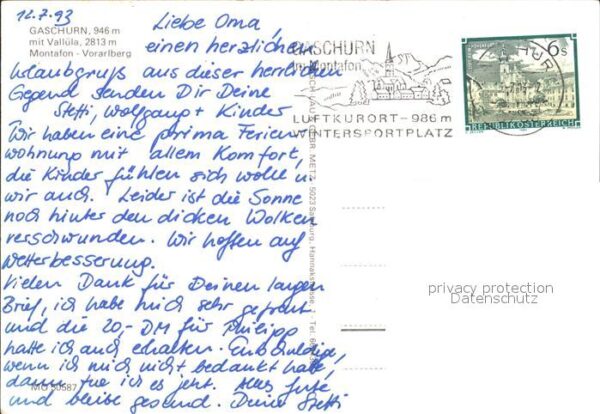 12.7.93
GASCHURN, 946 m
mit Vallüla, 2813 m
Montafon - Vorarlberg
Liebe Oma,
einen herzlichen
Urlaubsgruß aus dieser herrlichen
Gegend senden Dir Deine
Steffi, Wolfgang + Kinder
Wir haben eine prima Ferien
wohnung mit allem Komfort,
die Kinder fühlen sich wohl u.
wir auch. Leider ist die Sonne
noch hinter den dicken Wolken
verschwunden. Wir hoffen auf
Wetterbesserung.
Vielen Dank für Deinen langen
Brief, ich habe mich sehr gefreut
und die 20,- DM für Philipp
hatte ich auch erhalten. Entschuldige,
wenn ich mich nicht bedankt habe,
dann tue ich es jetzt. Alles Gute
und bleibe gesund. Deine Steffi
MO 50587
GASCHURN
im Montafon
LUFTKURORT-986 m
WINTERSPORTPLATZ
6 S
REPUBLIK ÖSTERREICH
METZ, 5023 Salzburg,
privacy protection
Datenschutz